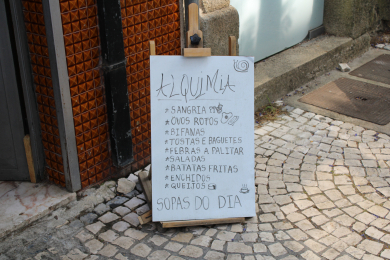 ALQUIMIA
*SANGRIA
*OVOS ROTOS
*BIFANAS
*TOSTAS E BAGUETES
*FEBRAS A PALITAR
*SALADAS
*BATATAS FRITAS
*ENCHIDOS
*QUEIJOS
SOPAS DO DIA